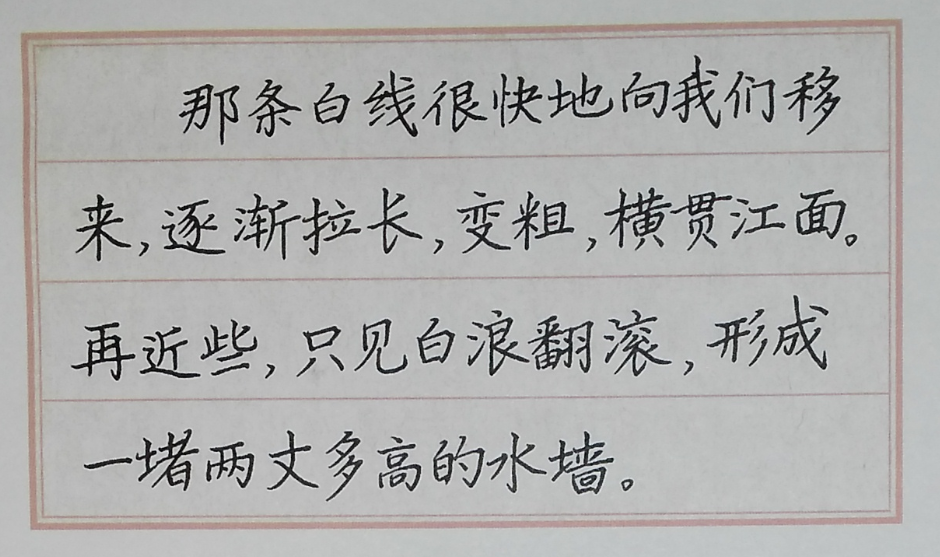 那条白线很快地向我们移
来,逐渐拉长,变粗,横贯江面。
再近些,只见白浪翻滚,形成
一堵两丈多高的水墙。